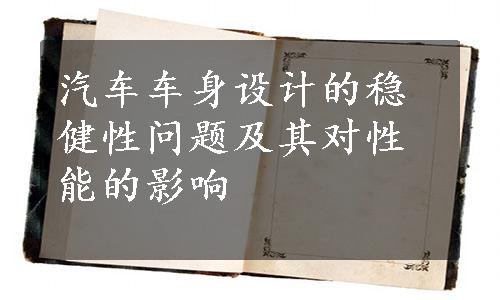 汽车车身设计的稳
健性问题及其对性
能的影响